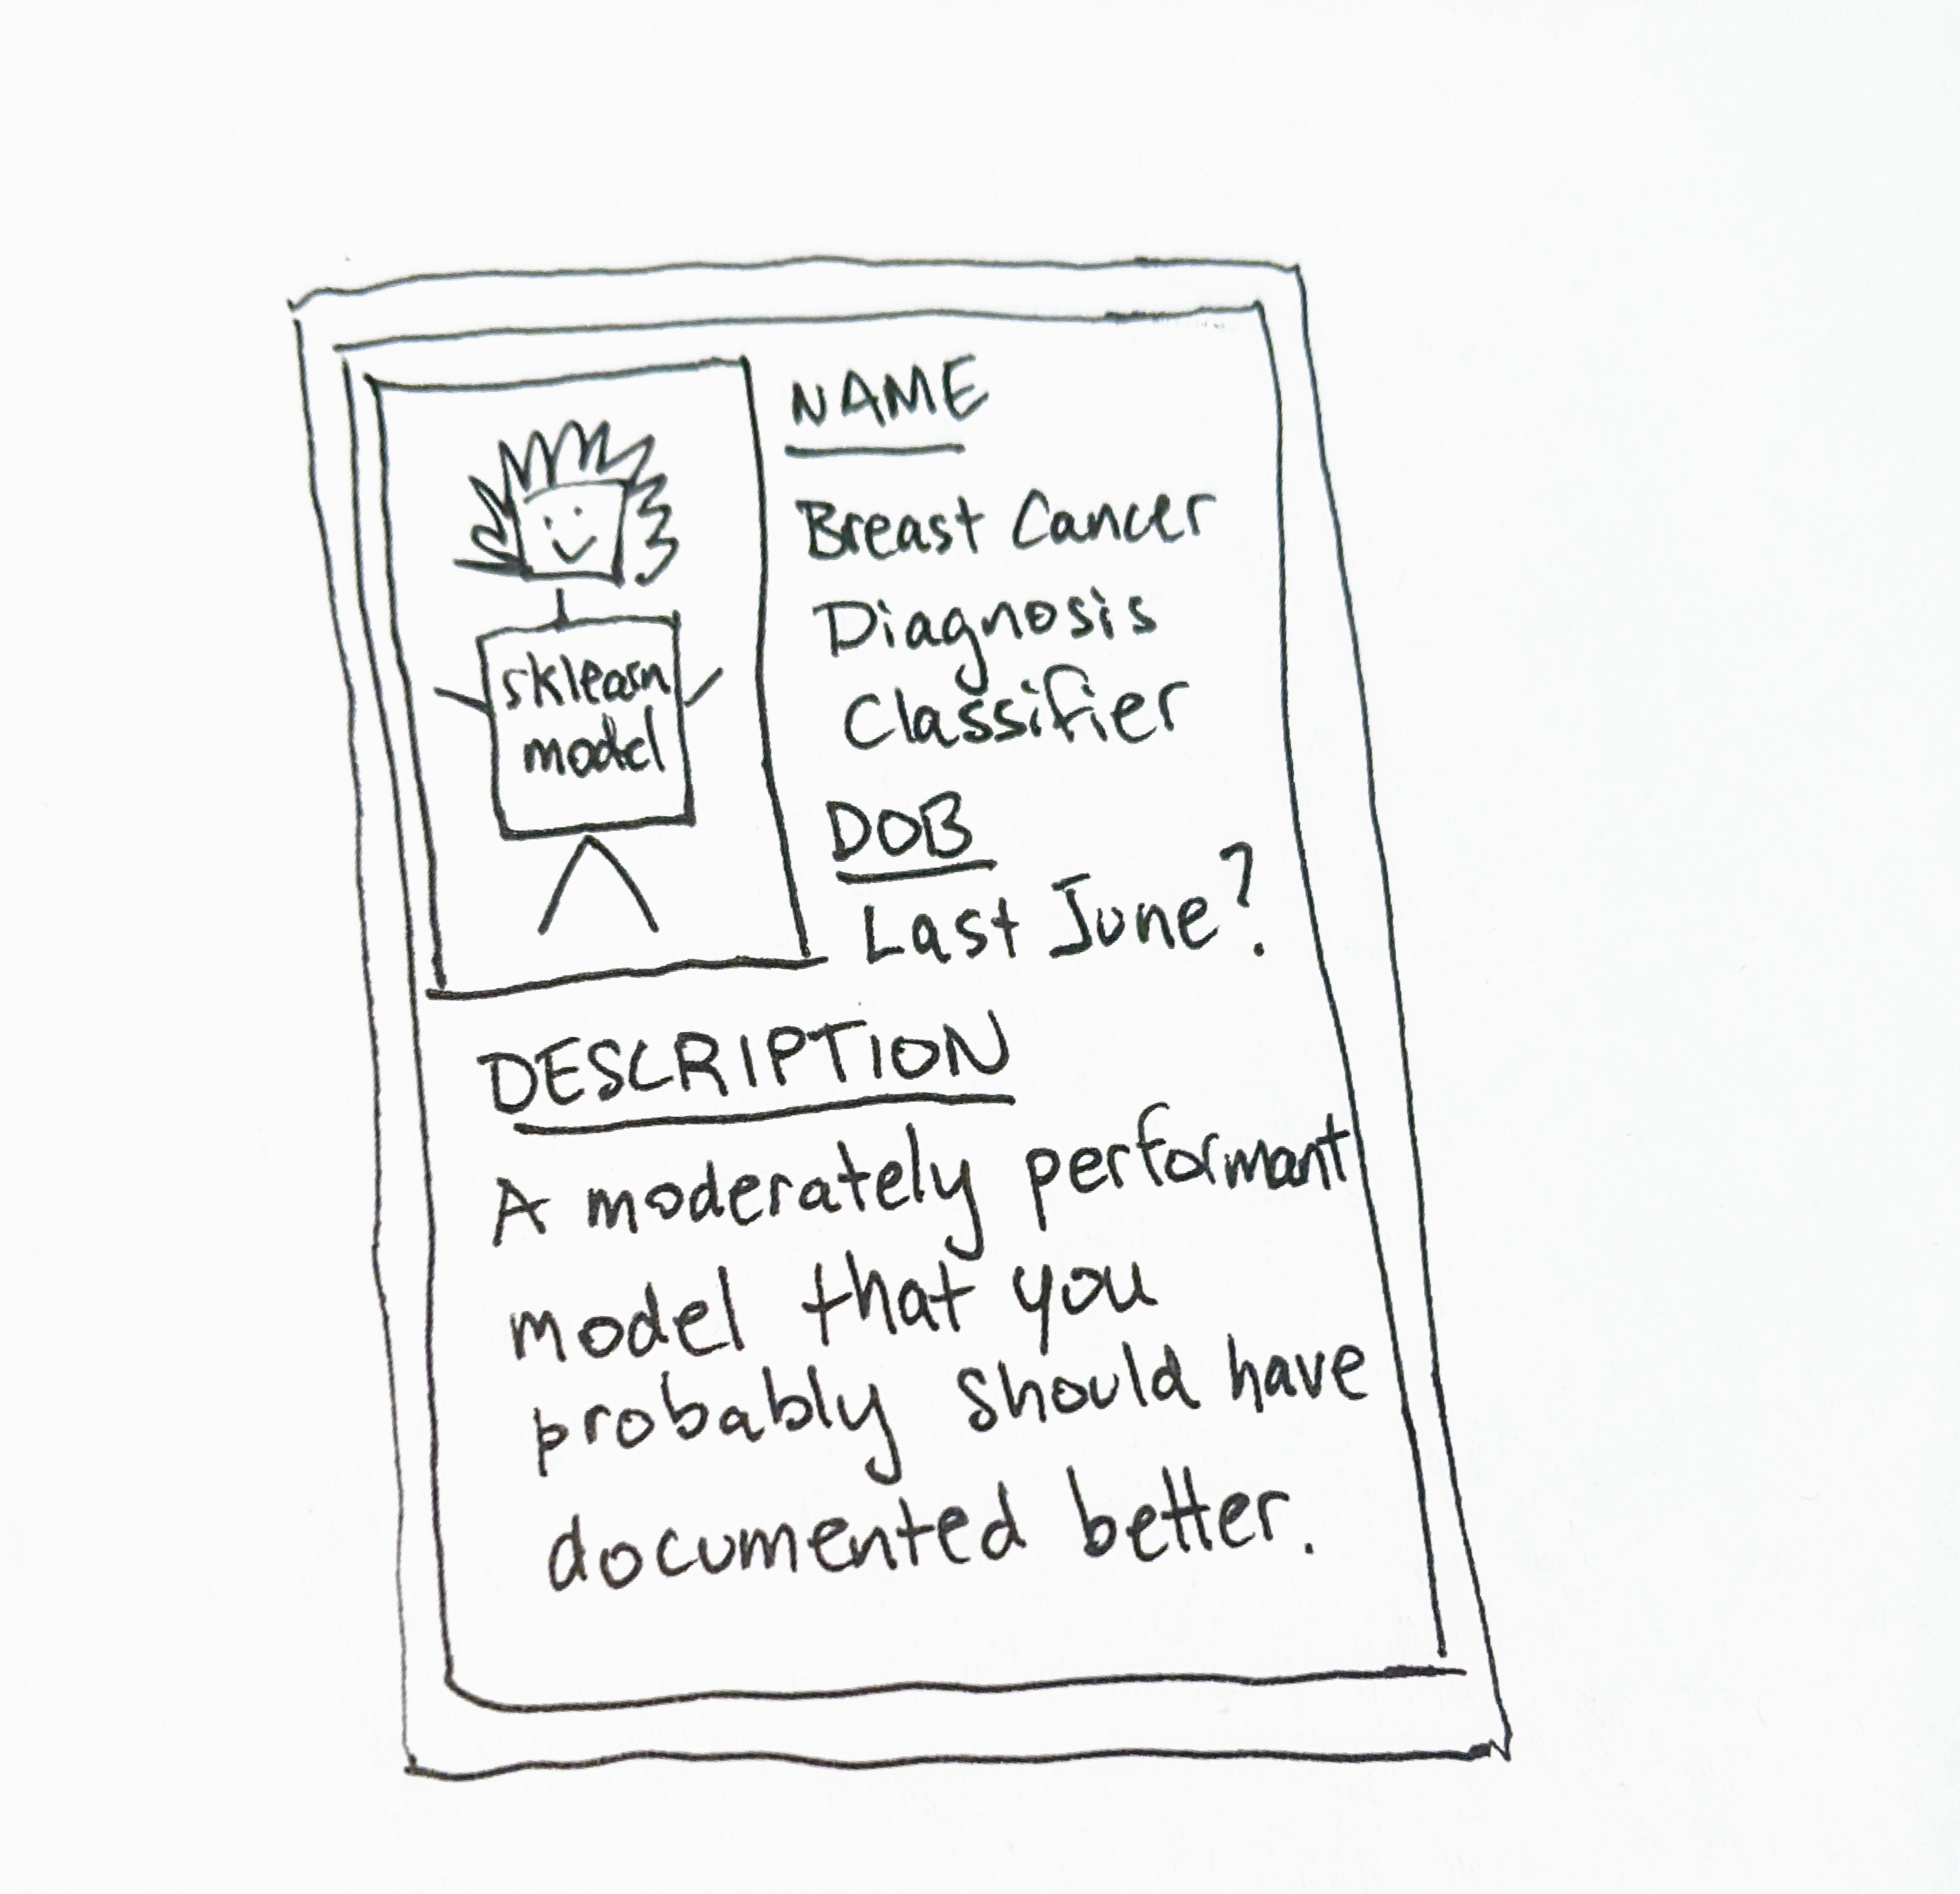 NAME
Breast Cancer
Diagnosis
Classifier
sklearn
model
DOB
Last June?
DESCRIPTION
A moderately performant
model that you
probably should have
documented better.